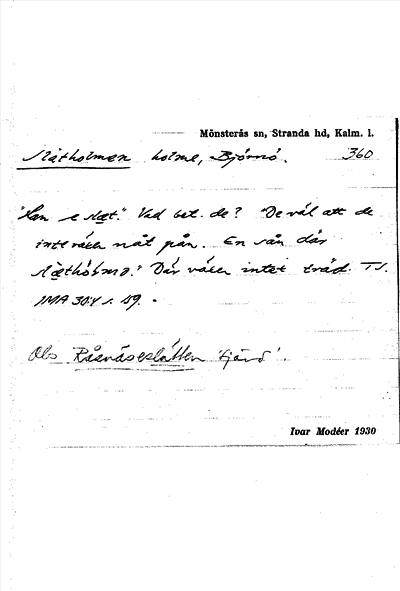 Mönsterås sn, Stranda hd, Kalm. l.
Slätholmen holme, Björnö. 360
"Han e slät". Vad bet. de? "De väl att de
inte växer nåt på'n. En sån där
." Där växer intet träd. TS.
IMA 304 s. 49.
Obs Råsnäseslätten 'fjärd'.
Ivar Modéer 1930